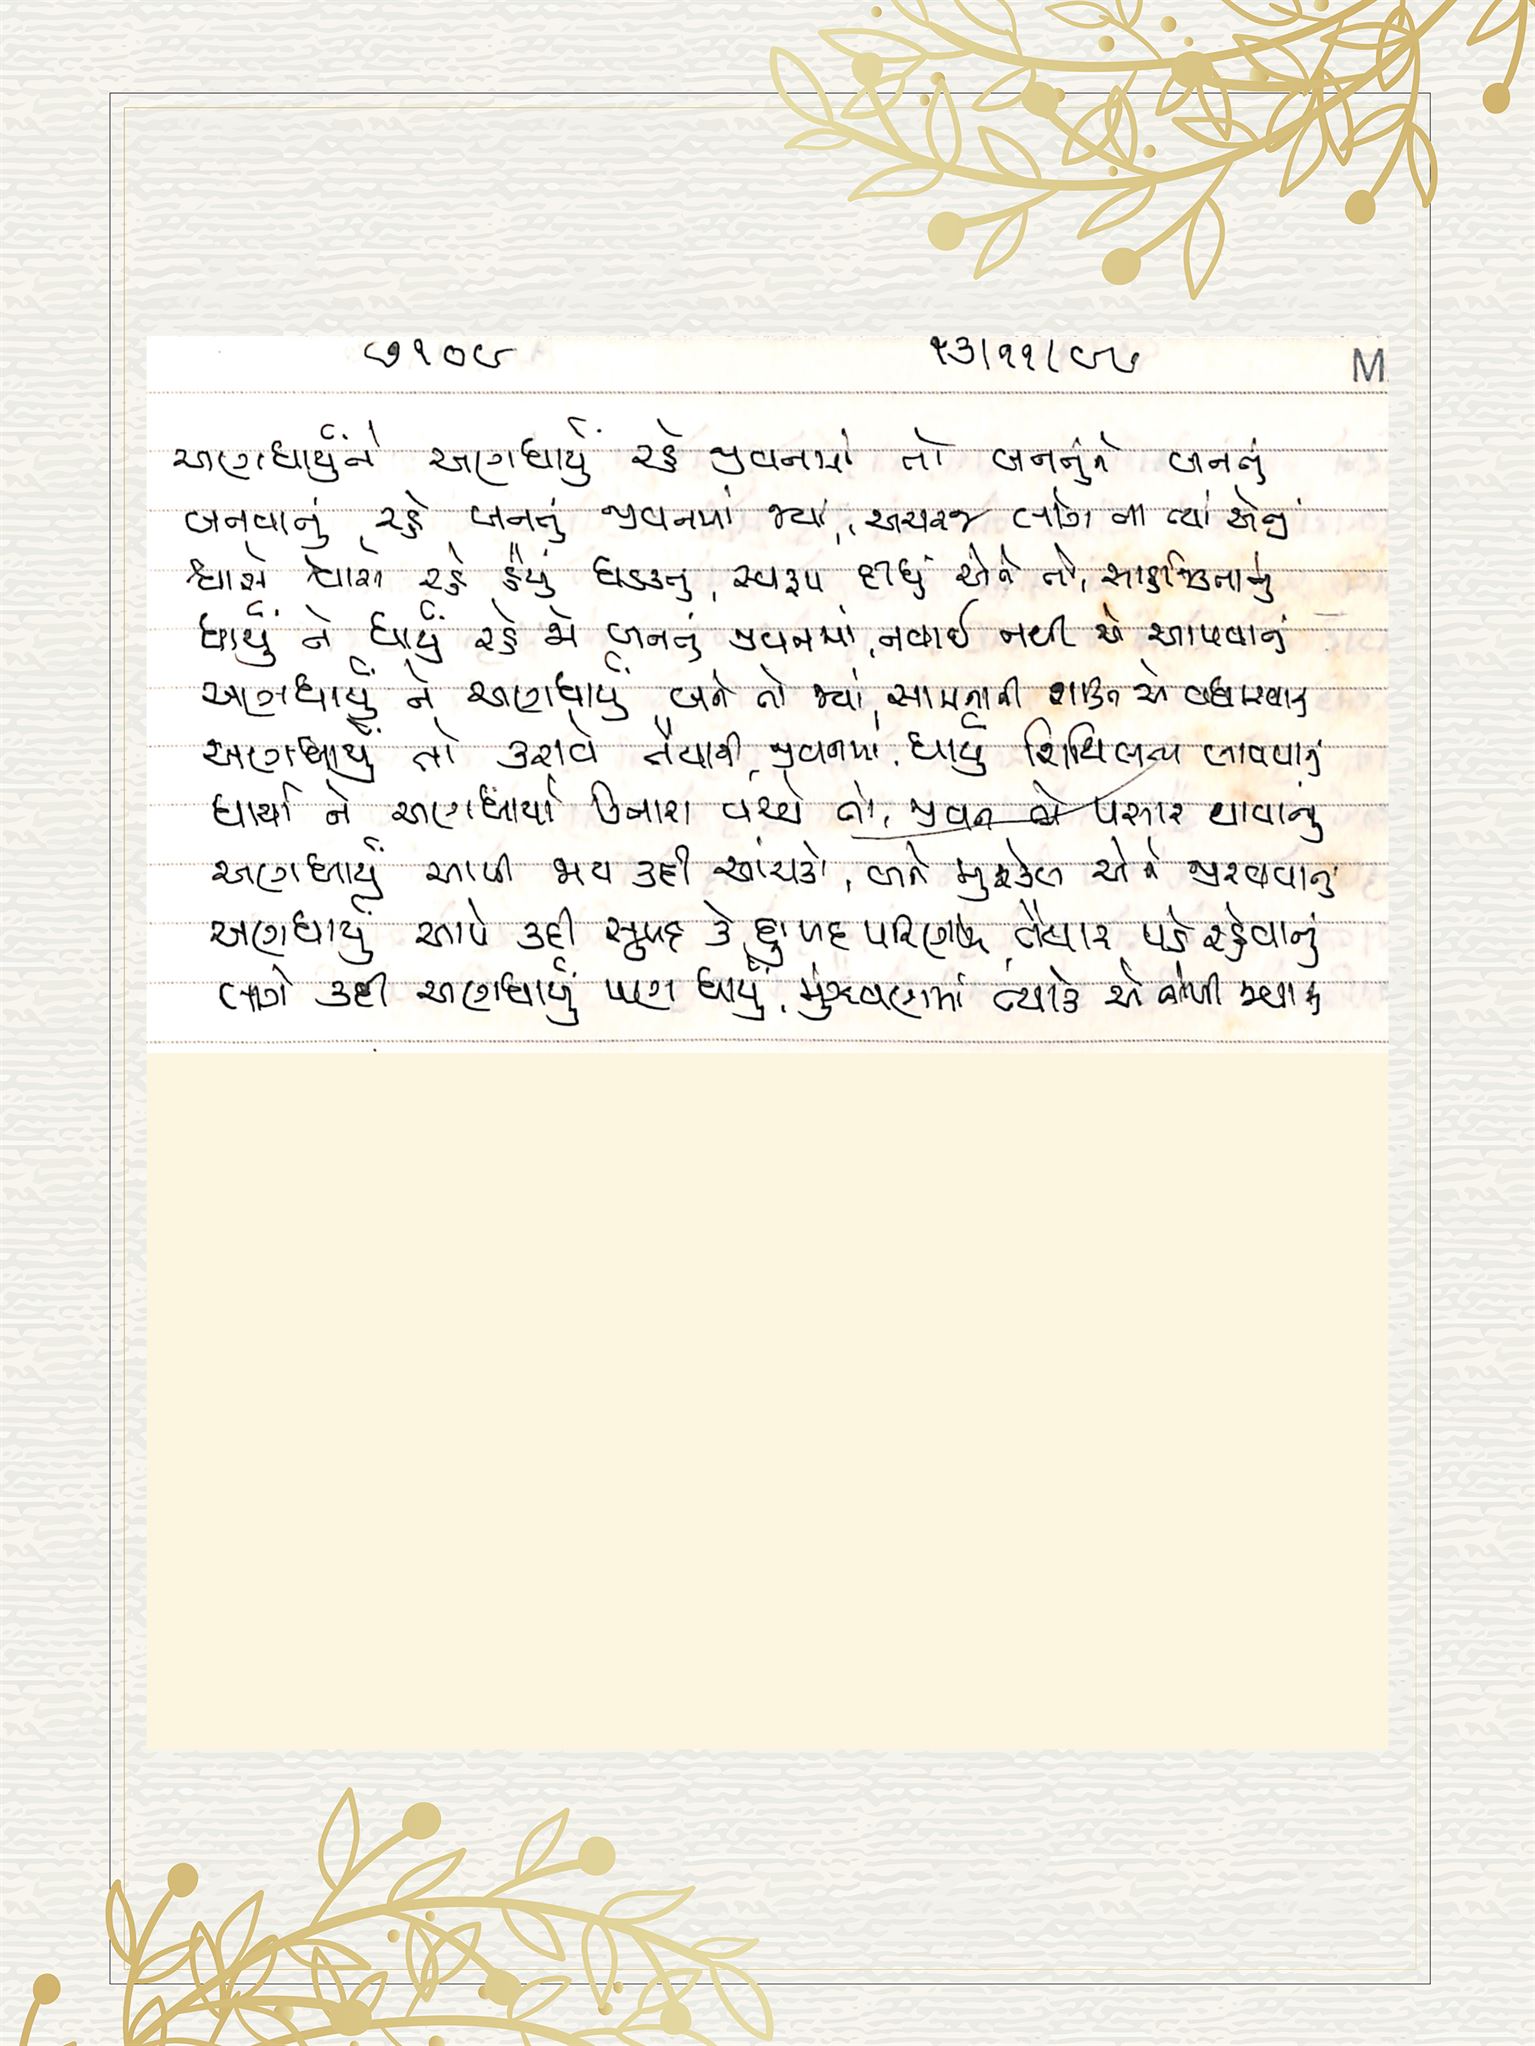 ૭૧૦૯ ૧૩/૧૧/૯૭ M
અણધાર્યુંને અણધાર્યું રહે જીવનમાં તો બનતુંને બનતું
બનવાનું, રહે બનતું જીવનમાં જ્યાં, અચરજ લાગે ના ત્યાં એનું
શ્વાસે શ્વાસે રહે હૈયું ધડકતું, સ્વરૂપ દીધું એને તો,
ધાર્યું ને ધાર્યું રહે જો બનતું જીવનમાં, નવાઈ નથી એ આપવાનું
અણધાર્યું ને અણધાર્યું બને તો જ્યાં, સામનાની શક્તિ એ વધારવાનું
અણધાર્યું તો કરાવે તૈયારી જીવનમાં, ધાર્યું શિથિલતા લાવવાનું
ધાર્યા ને અણધાર્યા વચ્ચે તો, જીવન જો પસાર થાવાનું
અણધાર્યું આપી જાય કદી આંચકો, બને મુશ્કેલ એને જીરવવાનું
અણધાર્યું આપે કદી સુખદ કે દુઃખદ પરિણામ, તૈયાર પડે રહેવાનું
લાગે કદી અણધાર્યું પણ ધાર્યું, મુંઝવણમાં ત્યારે એ નાંખી